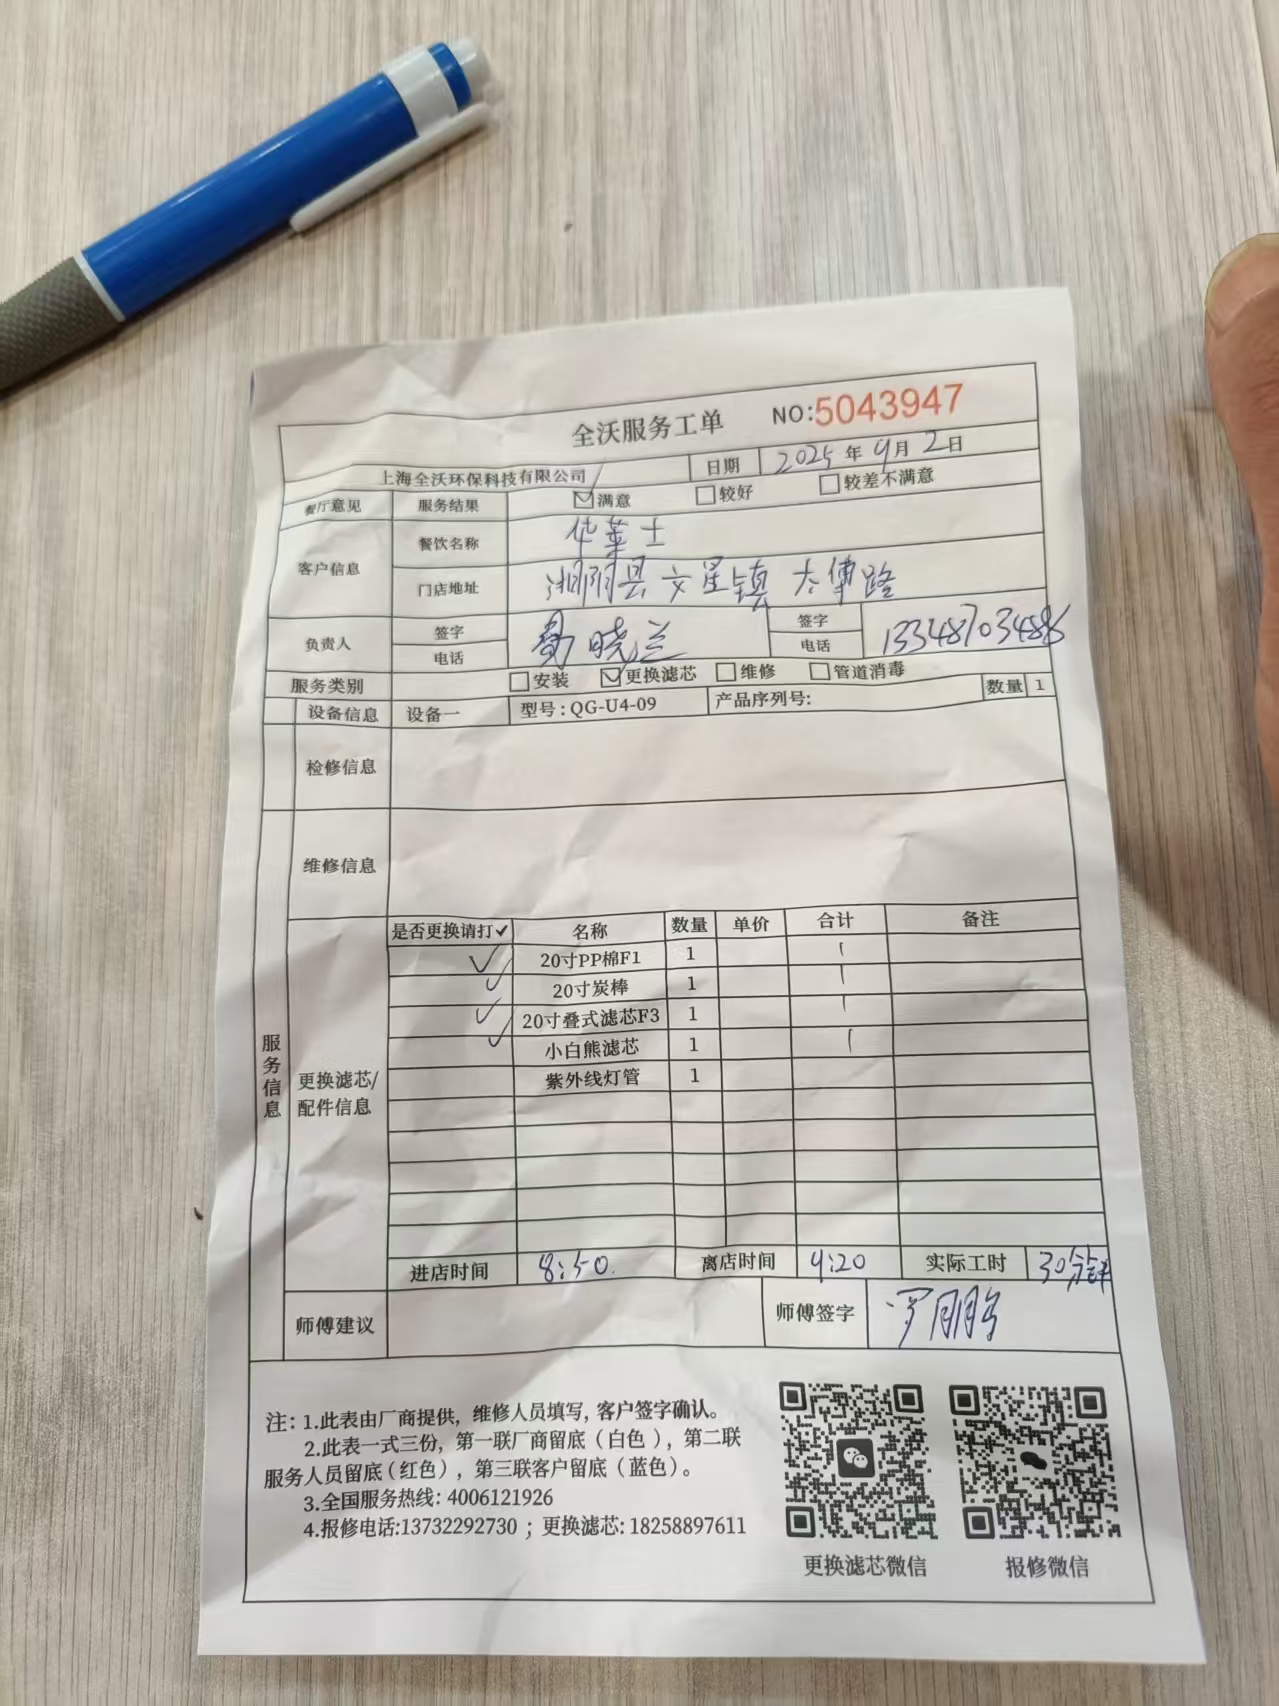 全沃服务工单 NO:5043947
上海全沃环保科技有限公司 日期 2025年9月2日
餐厅意见 服务结果 满意 较好 较差不满意
客户信息 餐饮名称 华莱士
门店地址 湘阴县文星镇 太傅路
负责人 签字 晓兰 签字
电话 电话 13348703486
服务类别 安装 更换滤芯 维修 管道消毒
设备信息 设备一 型号:QG-U4-09 产品序列号: 数量 1
检修信息
维修信息
服务信息
更换滤芯/配件信息
是否更换请打✓ 名称 数量 单价 合计 备注
✓ 20寸PP棉F1 1 1
✓ 20寸炭棒 1 1
✓ 20寸叠式滤芯F3 1 1
✓ 小白熊滤芯 1 1
紫外线灯管 1
进店时间 8:50. 离店时间 9:20 实际工时 30分钟
师傅建议 师傅签字 罗
注: 1.此表由厂商提供, 维修人员填写, 客户签字确认。
2.此表一式三份, 第一联厂商留底(白色), 第二联
服务人员留底(红色), 第三联客户留底(蓝色)。
3.全国服务热线: 4006121926
4.报修电话:13732292730 ; 更换滤芯: 18258897611
更换滤芯微信 报修微信